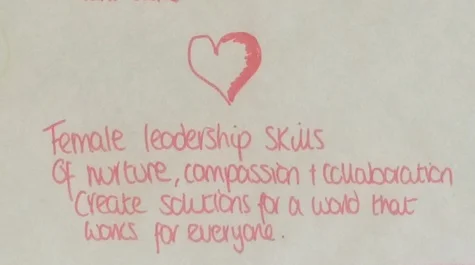 Female leadership skills
Of nurture, compassion + collaboration
Create solutions for a world that
works for everyone.